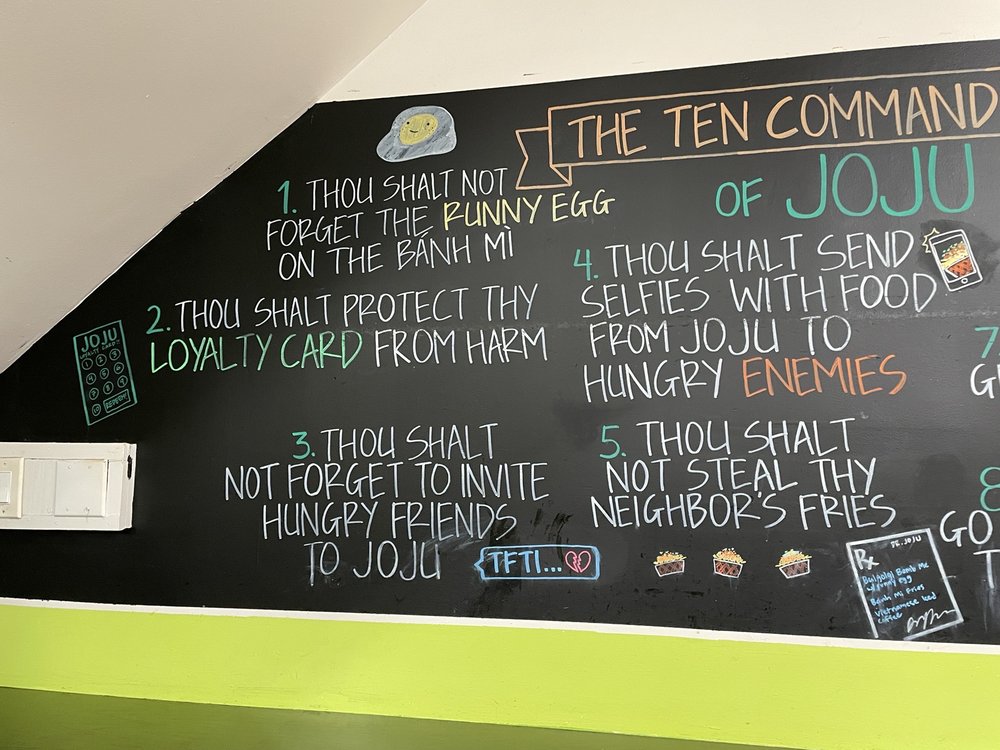 THE TEN COMMAND
OF JOJU
1. THOU SHALT NOT
FORGET THE RUNNY EGG
ON THE BÁNH MÌ
2. THOU SHALT PROTECT THY
LOYALTY CARD FROM HARM
JOJU
LOYALTY CARD
1 2 3
4 5 6
7 8 9
10 REDEEM!
3. THOU SHALT
NOT FORGET TO INVITE
HUNGRY FRIENDS
TO JOJU
TFTI...
4. THOU SHALT SEND
SELFIES WITH FOOD
FROM JOJU TO
HUNGRY ENEMIES
5. THOU SHALT
NOT STEAL THY
NEIGHBOR'S FRIES
7
G
8
GO
T
Rx DR. JOJU
Bulgogi Banh Mi
w/ runny egg
Banh Mi Fries
Vietnamese Iced
Coffee